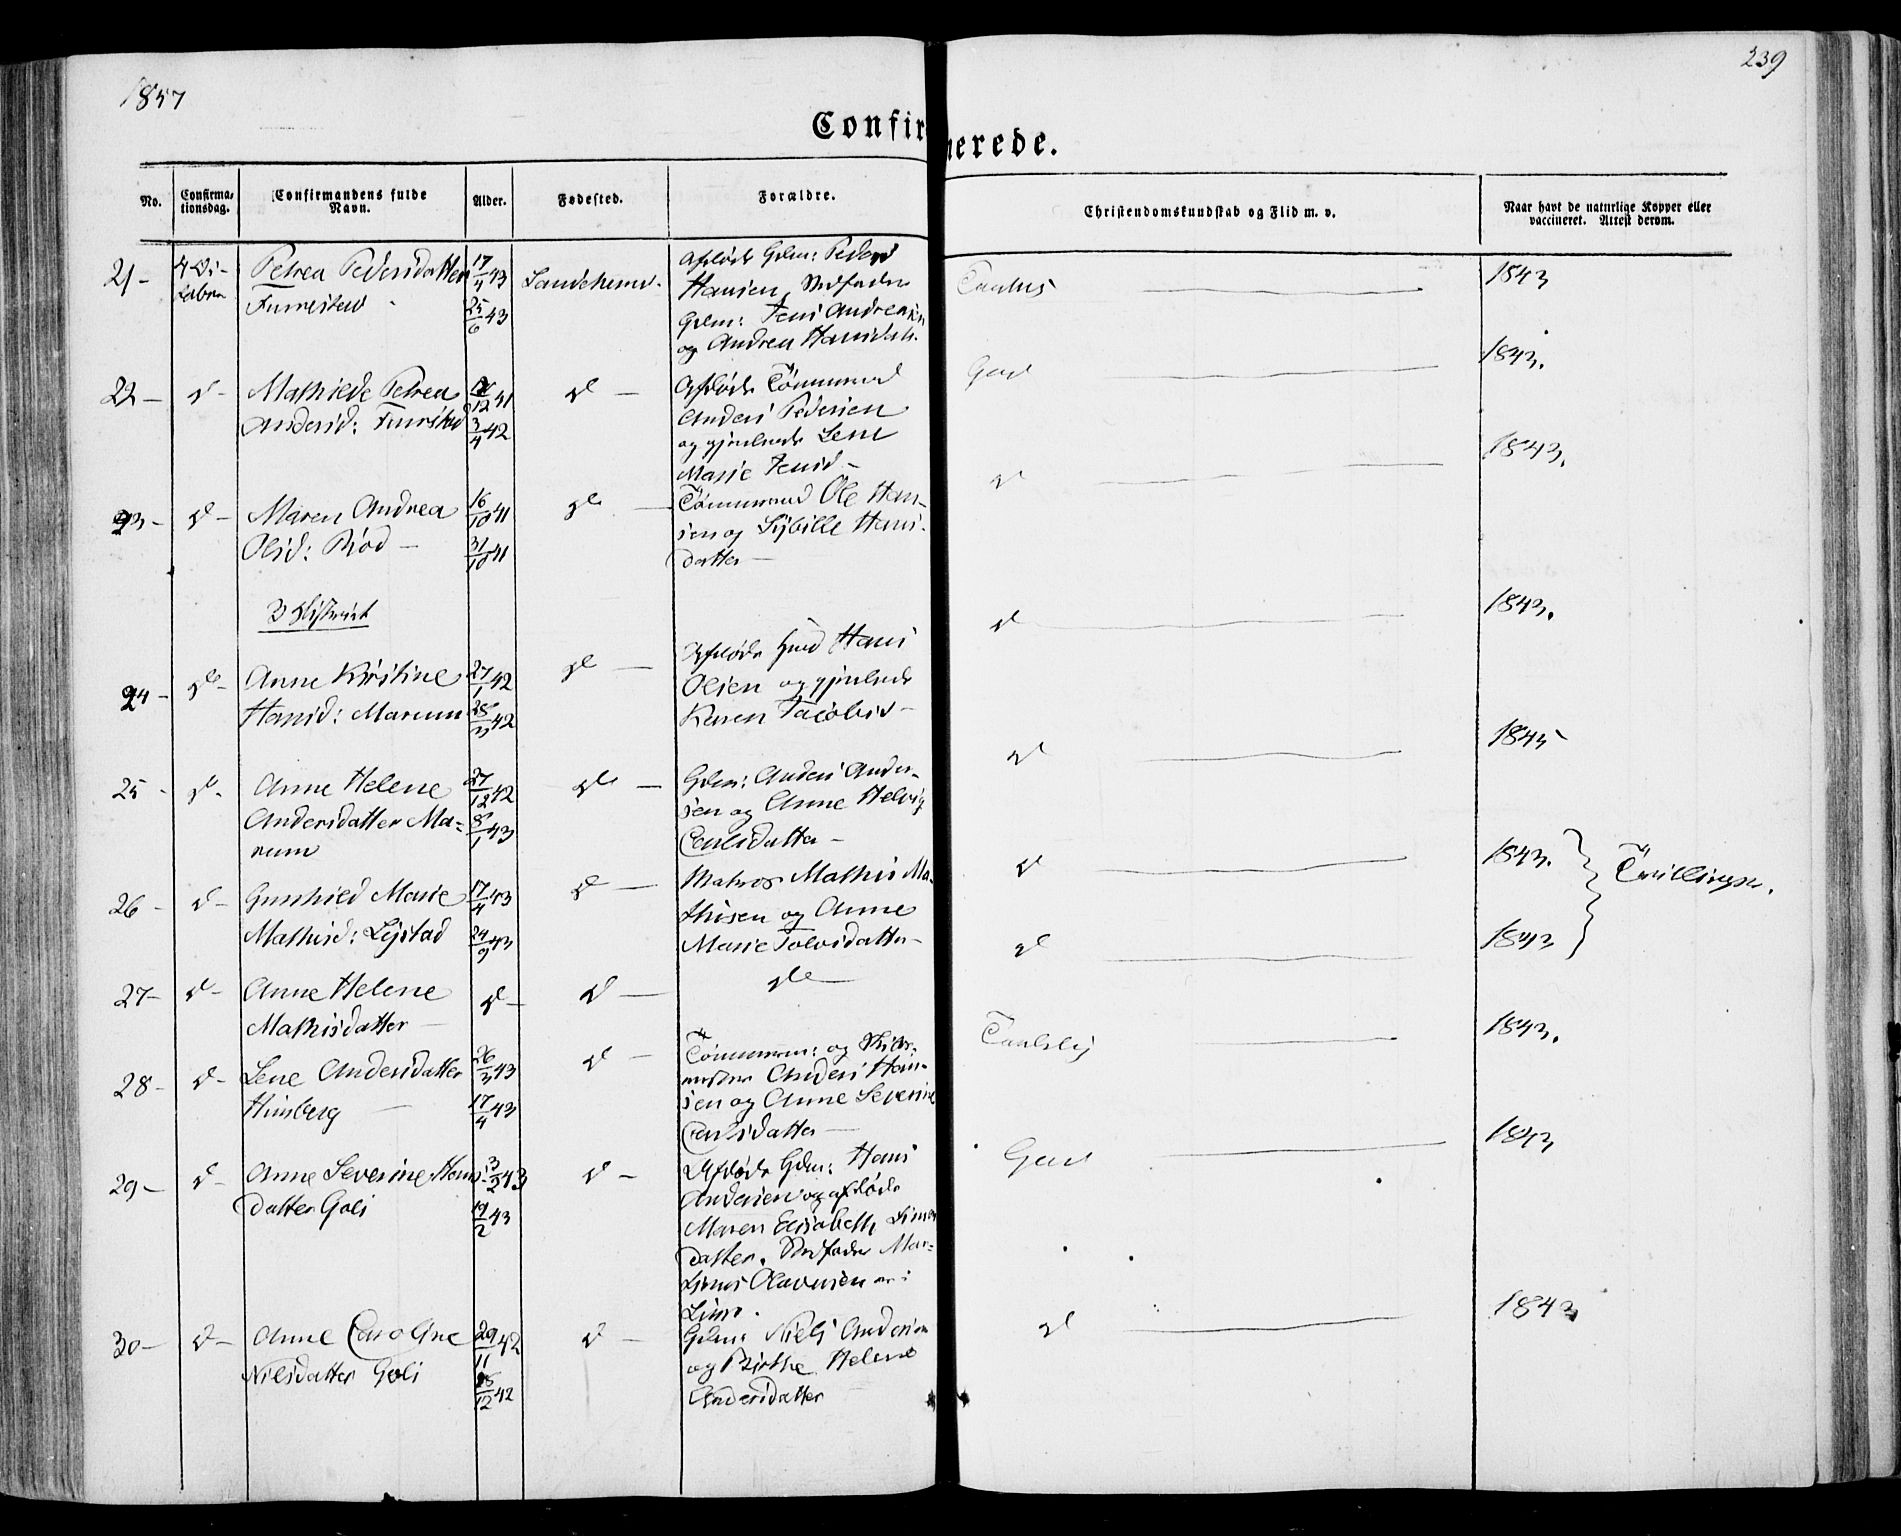 1857
239
Confirmerede.
No.
Confirma-
tionsdag.
Confirmandens fulde
Navn.
Alder.
Fødested.
Forældre.
Christendomskundskab og Flid m. v.
Naar havt de naturlige Kopper eller
vaccineret. Attest derom.
21-
Petrea Pedersdatter
Furrestad
17/4 43
25/6 43
Sandeherred.
Afdøde Gdm: Peder
Hansen, Stedfader
Gdm: Jens Andreasen
og Andrea Hansdatt.
1843
22-
d-
Mathilde Petrea
Andersd: Furrestad
12 41
3/4 42
d-
Afdøde Tømmermd
Anders Pedersen
og gjenlevende Lene
Marie Jensd-
God
1843.
23-
d-
Maren Andrea
Olsd: Rød-
16/10 41
31/10 41
d-
Tømmermd Ole Han-
sen og Sybille Hans-
datter-
d
1843.
3 District
24-
d-
Anne Kirstine
Hansd: Marum
27/1 42
28/3 42
d-
Afdøde Hans
Olsen og gjenlevende
Karen Jacobsd-
d
1843.
25-
d-
Anne Helene
Andersdatter Ma-
rum
27/12 42
8/1 43
d-
Gdm: Anders Ander-
sen og Anne Helvig
Carlsdatter-
d
1845
26-
d-
Gunhild Marie
Mathisd: Lystad
17/4 43
24/9 43
d-
Matros Mathis Ma-
thisen og Anne
Marie Tolvsdatter-
d
1843.
Tvillinger.
27-
d-
Anne Helene
Mathisdatter-
d-
d-
d-
d
1843
28-
d-
Lene Andersdatter
Himberg-
26/3 43
17/4 43
d-
Tømmerm: og Skibs-
Anders Han-
sen og Anne Severine
Carlsdatter-
1843.
29-
d-
Anne Severine Hans-
datter Goli
3/2 43
19/2 43
d-
Afdøde Gdm: Hans
Andersen og afdøde
Maren Elisabeth Simens
datter. Stedfader Mar-
Olavesen

God
1843
30-
d-
Anne Caroline
Nilsdatter Goli
29/11 42
12 42
d-
Gdm: Niels Andersen
og Birthe Helene
Andersdatter
d
1843